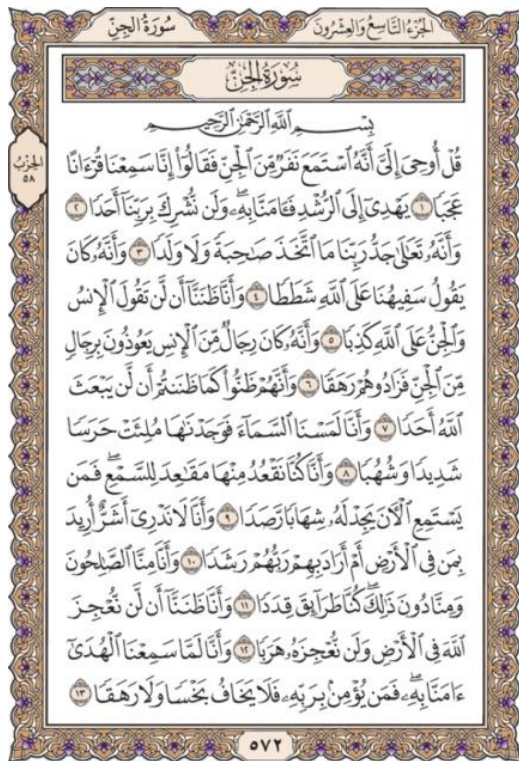 سُورَةُ الجِنِّ
الجُزْءُ التَّاسِعُ وَالعِشْرُونَ
سُورَةُ الجِنِّ
الحِزْبُ
٥٨
بِسْمِ ٱللَّهِ ٱلرَّحْمَٰنِ ٱلرَّحِيمِ
قُلْ أُوحِىَ إِلَىَّ أَنَّهُ ٱسْتَمَعَ نَفَرٌ مِّنَ ٱلْجِنِّ فَقَالُوٓا۟ إِنَّا سَمِعْنَا قُرْءَانًا
عَجَبًا ١ يَهْدِىٓ إِلَى ٱلرُّشْدِ فَـَٔامَنَّا بِهِۦ وَلَن نُّشْرِكَ بِرَبِّنَآ أَحَدًا ٢
وَأَنَّهُۥ تَعَٰلَىٰ جَدُّ رَبِّنَا مَا ٱتَّخَذَ صَٰحِبَةً وَلَا وَلَدًا ٣ وَأَنَّهُۥ كَانَ
يَقُولُ سَفِيهُنَا عَلَى ٱللَّهِ شَطَطًا ٤ وَأَنَّا ظَنَنَّآ أَن لَّن تَقُولَ ٱلْإِنسُ
وَٱلْجِنُّ عَلَى ٱللَّهِ كَذِبًا ٥ وَأَنَّهُۥ كَانَ رِجَالٌ مِّنَ ٱلْإِنسِ يَعُوذُونَ بِرِجَالٍ
مِّنَ ٱلْجِنِّ فَزَادُوهُمْ رَهَقًا ٦ وَأَنَّهُمْ ظَنُّوا۟ كَمَا ظَنَنتُمْ أَن لَّن يَبْعَثَ
ٱللَّهُ أَحَدًا ٧ وَأَنَّا لَمَسْنَا ٱلسَّمَآءَ فَوَجَدْنَٰهَا مُلِئَتْ حَرَسًا
شَدِيدًا وَشُهُبًا ٨ وَأَنَّا كُنَّا نَقْعُدُ مِنْهَا مَقَٰعِدَ لِلسَّمْعِ ۖ فَمَن
يَسْتَمِعِ ٱلْـَٔانَ يَجِدْ لَهُۥ شِهَابًا رَّصَدًا ٩ وَأَنَّا لَا نَدْرِىٓ أَشَرٌّ أُرِيدَ
بِمَن فِى ٱلْأَرْضِ أَمْ أَرَادَ بِهِمْ رَبُّهُمْ رَشَدًا ١٠ وَأَنَّا مِنَّا ٱلصَّٰلِحُونَ
وَمِنَّا دُونَ ذَٰلِكَ ۖ كُنَّا طَرَآئِقَ قِدَدًا ١١ وَأَنَّا ظَنَنَّآ أَن لَّن نُّعْجِزَ
ٱللَّهَ فِى ٱلْأَرْضِ وَلَن نُّعْجِزَهُۥ هَرَبًا ١٢ وَأَنَّا لَمَّا سَمِعْنَا ٱلْهُدَىٰٓ
ءَامَنَّا بِهِۦ ۖ فَمَن يُؤْمِنۢ بِرَبِّهِۦ فَلَا يَخَافُ بَخْسًا وَلَا رَهَقًا ١٣
٥٧٢